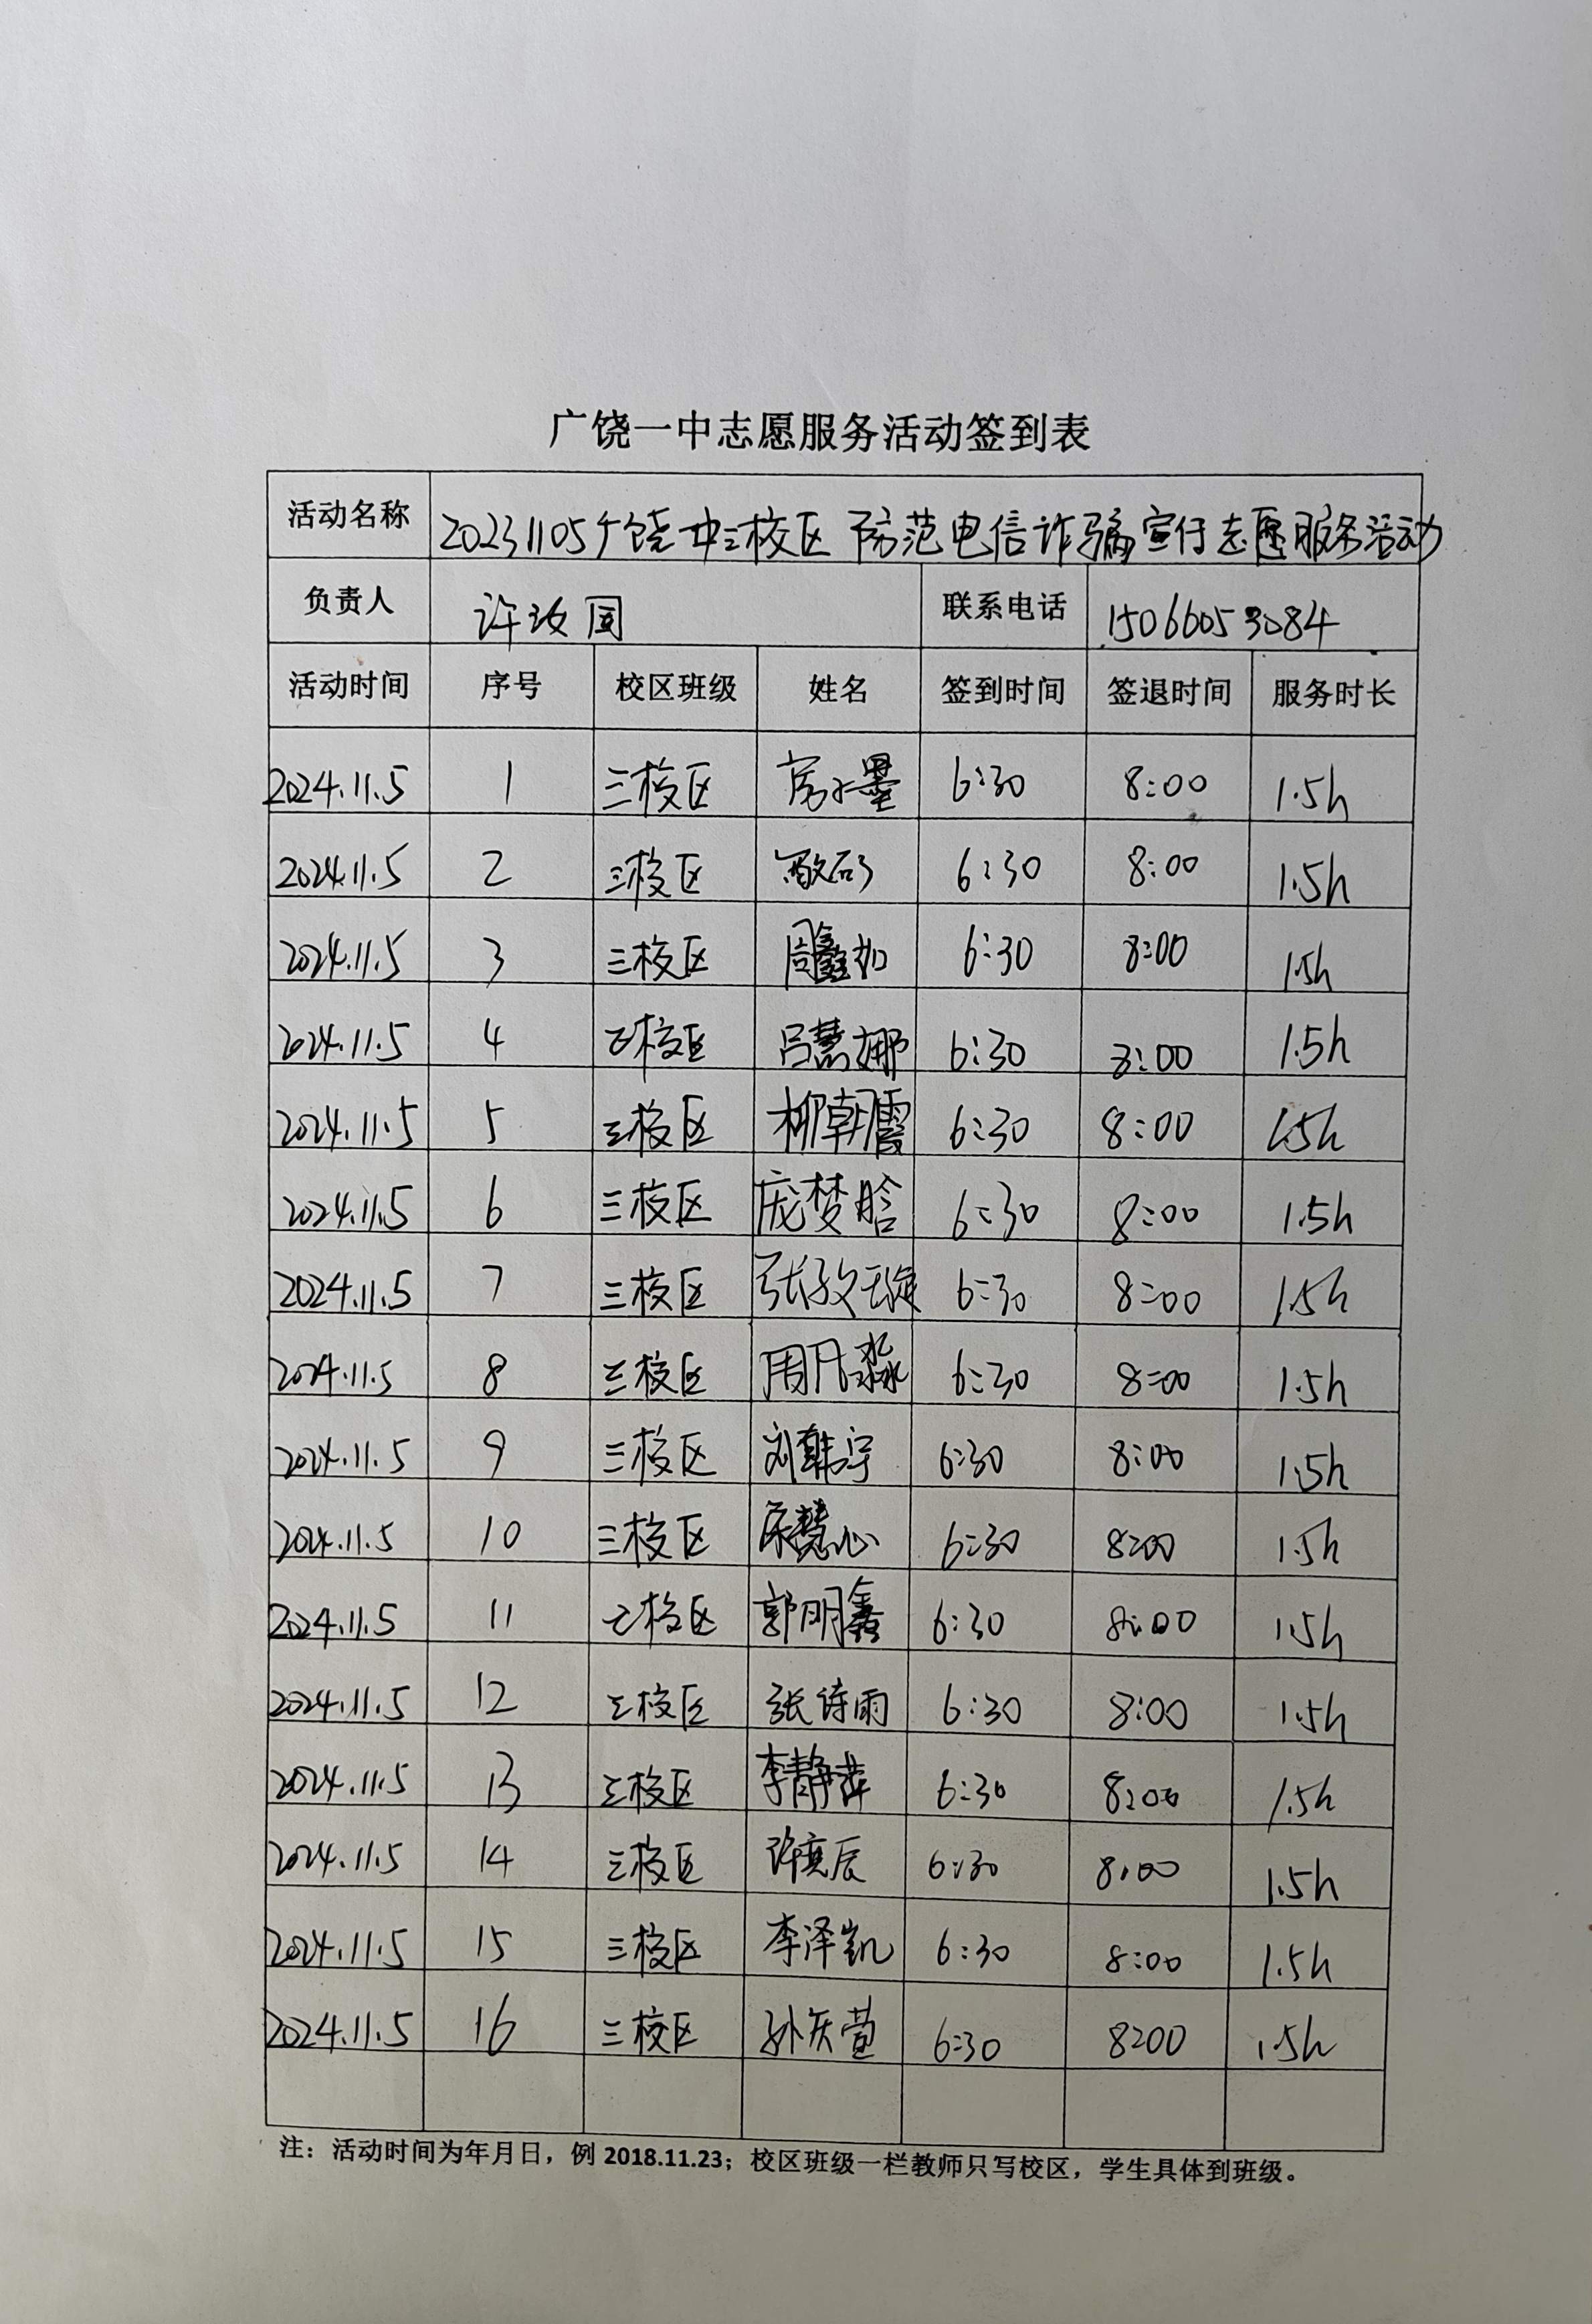 广饶一中志愿服务活动签到表
活动名称 20231105广饶一中三校区 防范电信诈骗宣传志愿服务活动
负责人 许政国 联系电话 15066053084
活动时间 序号 校区班级 姓名 签到时间 签退时间 服务时长
2024.11.5 1 三校区 房水墨 6:30 8:00 1.5h
2024.11.5 2 三校区 6:30 8:00 1.5h
2024.11.5 3 三校区 周鑫如 6:30 8:00 1.5h
2024.11.5 4 三校区 吕慧娜 6:30 8:00 1.5h
2024.11.5 5 三校区 柳朝霞 6:30 8:00 1.5h
2024.11.5 6 三校区 庞梦晗 6:30 8:00 1.5h
2024.11.5 7 三校区 张孜璇 6:30 8:00 1.5h
2024.11.5 8 三校区 周丹淼 6:30 8:00 1.5h
2024.11.5 9 三校区 刘韩宇 6:30 8:00 1.5h
2024.11.5 10 三校区 慧心 6:30 8:00 1.5h
2024.11.5 11 三校区 郭明鑫 6:30 8:00 1.5h
2024.11.5 12 三校区 张诗雨 6:30 8:00 1.5h
2024.11.5 13 三校区 李静萍 6:30 8:00 1.5h
2024.11.5 14 三校区 许奕辰 6:30 8:00 1.5h
2024.11.5 15 三校区 李泽凯 6:30 8:00 1.5h
2024.11.5 16 三校区 孙庆萱 6:30 8:00 1.5h
注：活动时间为年月日，例 2018.11.23；校区班级一栏教师只写校区，学生具体到班级。